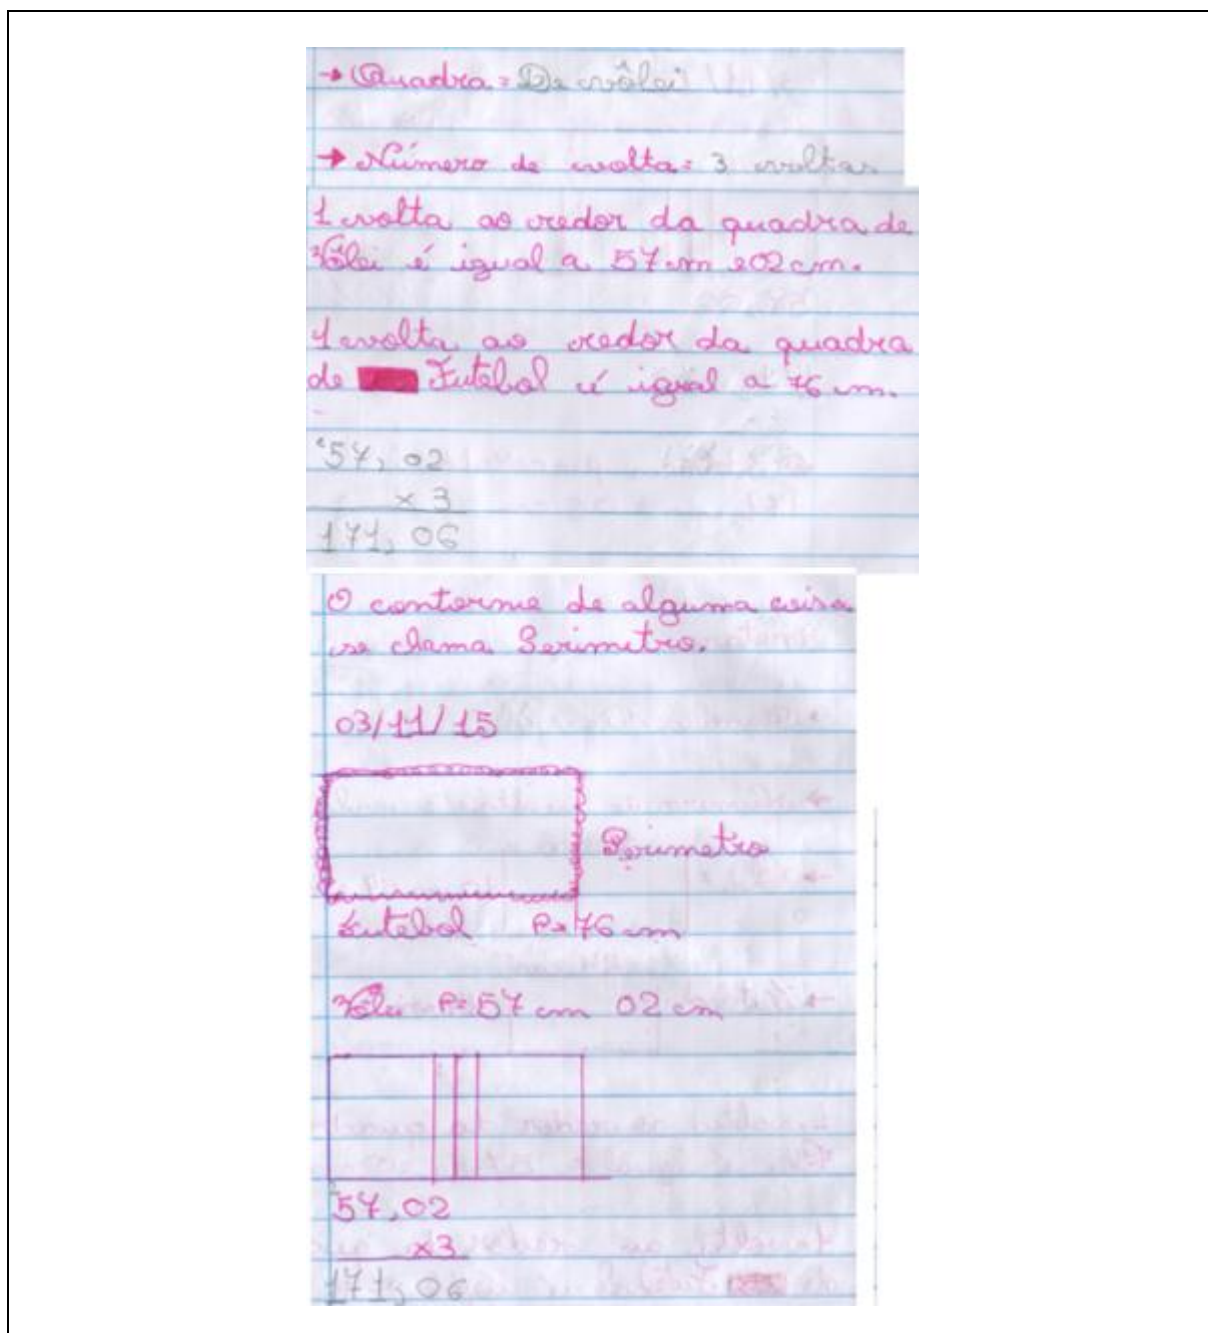 → Quadra = De vôlei
→ Número de volta = 3 voltas
1 volta ao redor da quadra de
Vôlei é igual a 57 m e 02 cm.
1 volta ao redor da quadra
de Futebol é igual a 76 m.
57,02
x 3
171,06
O contorno de alguma coisa
se chama Perimetro.
03/11/15
Perimetro
Futebol P= 76 m
Vôlei P= 57 m 02 cm
57,02
x3
171,06